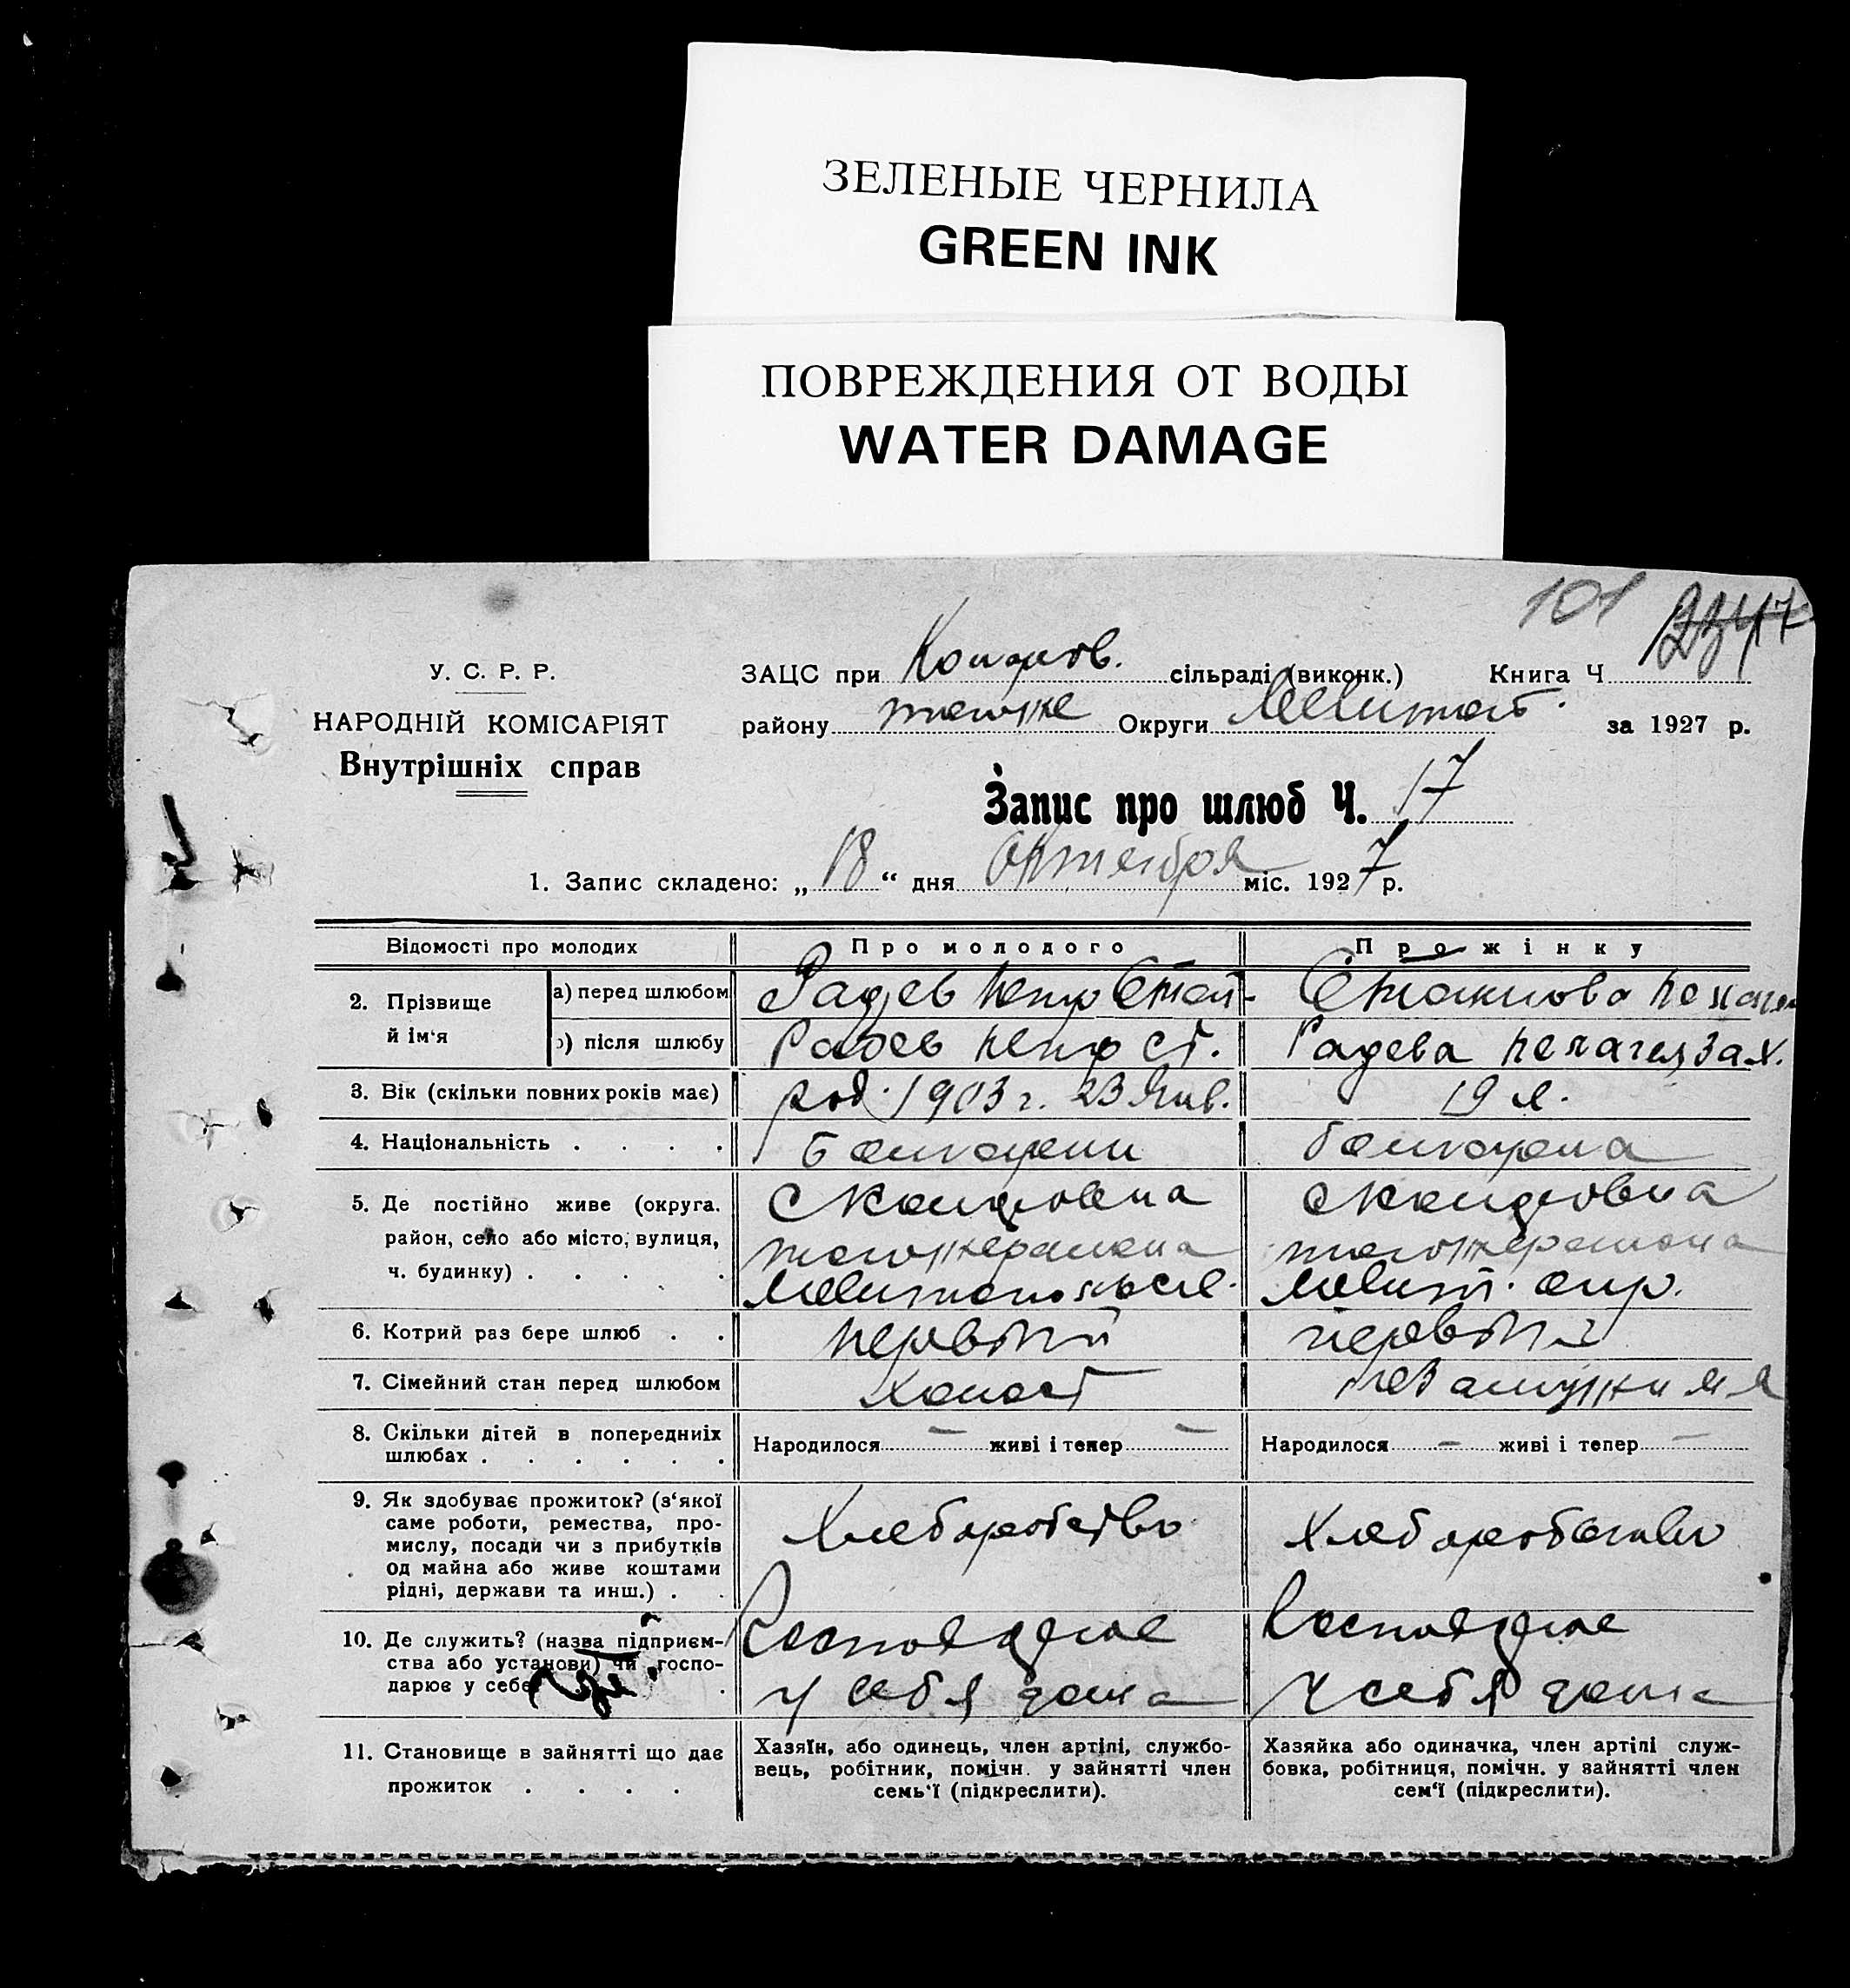 ЗЕЛЕНЫЕ ЧЕРНИЛА
GREEN INK
ПОВРЕЖДЕНИЯ ОТ ВОДЫ
WATER DAMAGE
101
У. С. Р. Р.
НАРОДНІЙ КОМІСАРІЯТ
Внутрішніх справ
ЗАЦС при сільраді (виконк.) Книга Ч
району Округи Мелитоп. за 1927 р.
Запис про шлюб Ч. 17
1. Запис складено: „18“ дня Октября міс. 1927 р.
Відомості про молодих Про молодого Про жінку
2. Прізвище й ім‘я
а) перед шлюбом Радев Петр Стоянова
) після шлюбу Радев Петр Ст. Радева Пелагея Зах.
3. Вік (скільки повних років має) род. 1903 г. 23 Янв. 19 л.
4. Національність . . . . Болгарин болгарка
5. Де постійно живе (округа.
район, село або місто, вулиця,
ч. будинку) . . . . Мелит. окр.
6. Котрий раз бере шлюб . . первый первый
7. Сімейний стан перед шлюбом холост незамужняя
8. Скільки дітей в попередниіх
шлюбах . . . . . . Народилося — живі і тепер — Народилося — живі і тепер —
9. Як здобуває прожиток? (з‘якої
саме роботи, ремества, про-
мислу, посади чи з прибутків
од майна або живе коштами
рідні, держави та инш.) . . Хлеборобство Хлеборобство
10. Де служить? (назва підприєм-
ства або установи) чи госпо-
дарює у себе
у себя дома у себя дома
11. Становище в зайнятті що дає
прожиток . . . .
Хазяїн, або одинець, член артілі, службо-
вець, робітник, помічн. у зайнятті член
семь‘ї (підкреслити).
Хазяйка або одиначка, член артілі служ-
бовка, робітниця, помічн. у зайнятті член
сем‘ї (підкреслити).